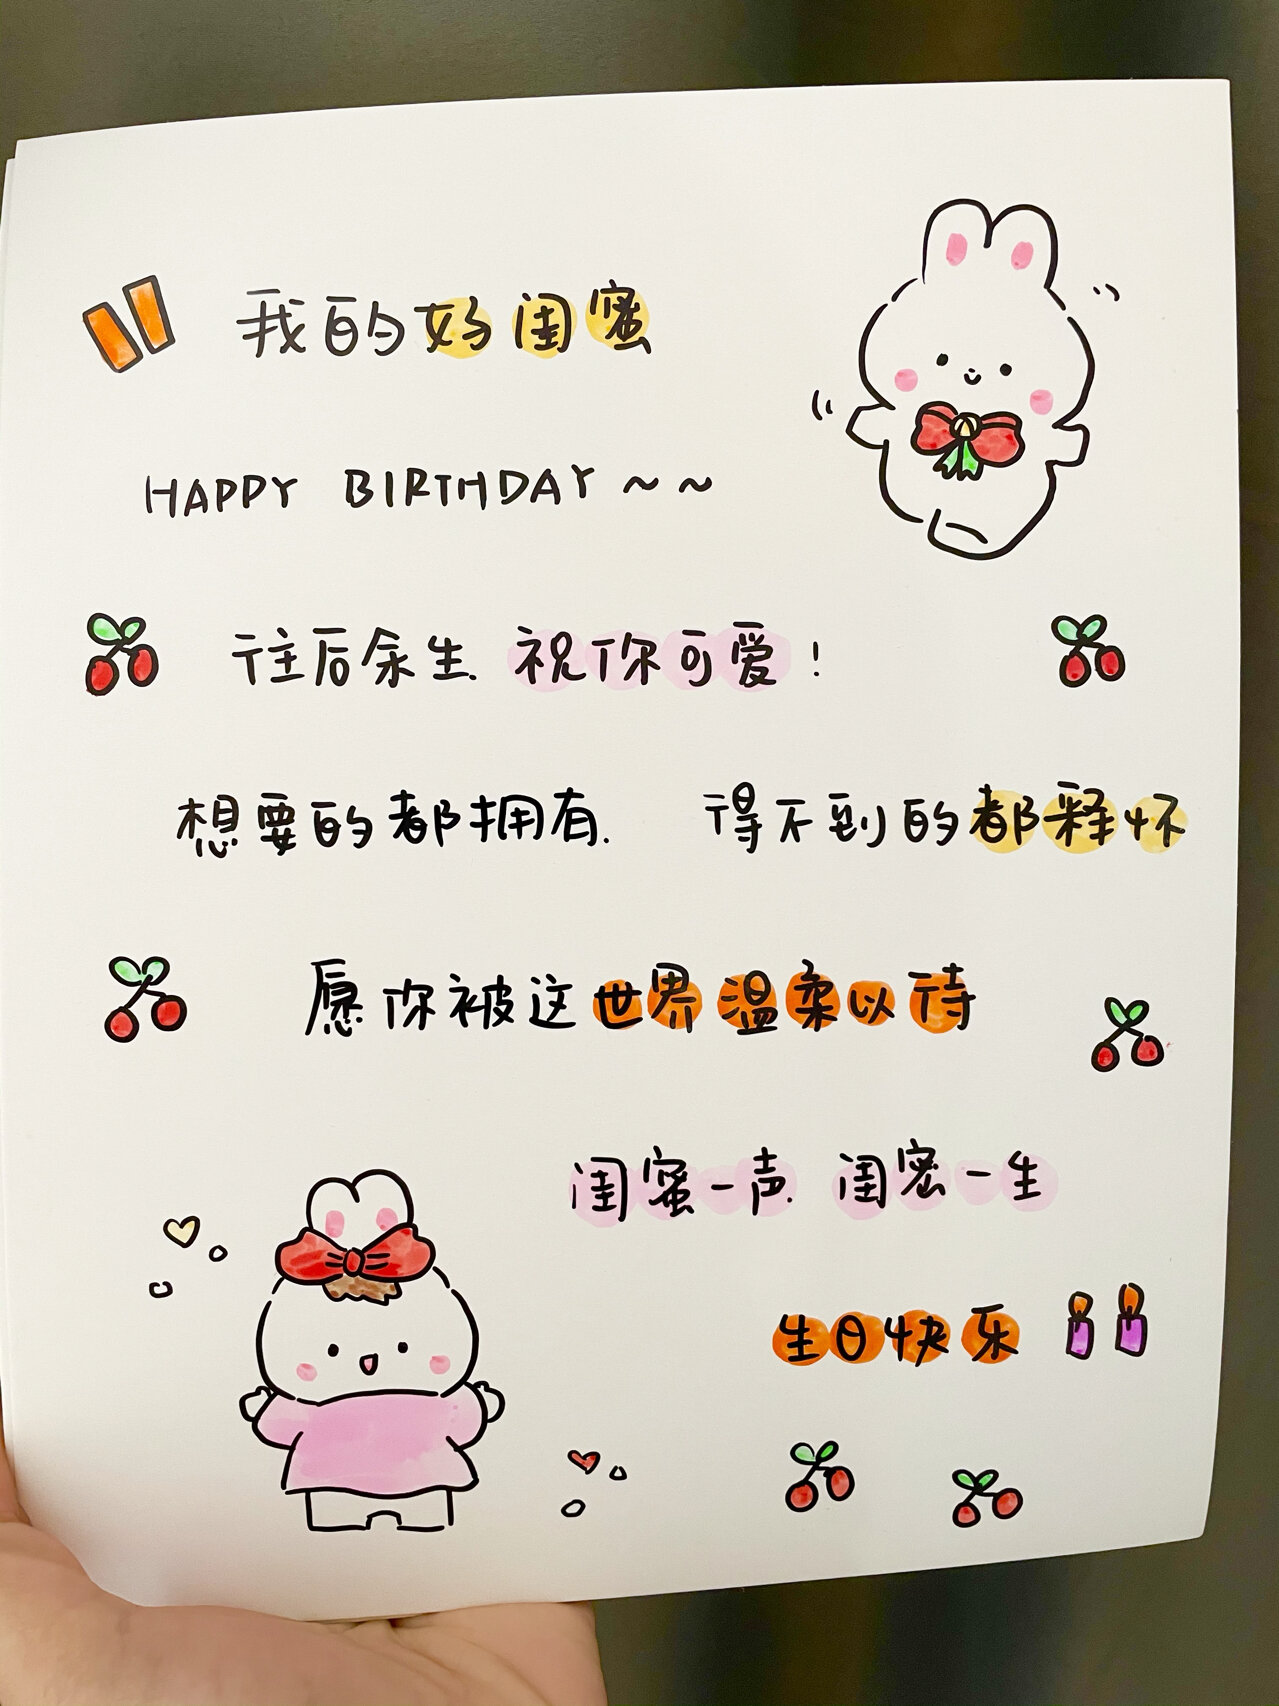 我的好闺蜜
HAPPY BIRTHDAY ~ ~
往后余生 祝你可爱!
想要的都拥有. 得不到的都释怀
愿你被这世界温柔以待
闺蜜一声. 闺密一生
生日快乐